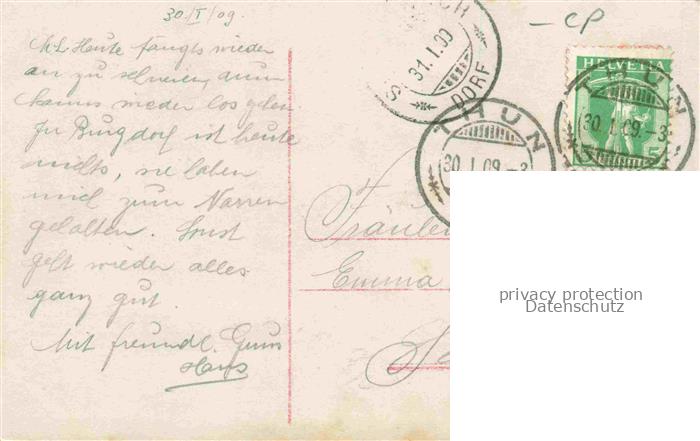 30/I/09.
- CP
M.L. Heute fangts wieder
an zu schneien, dann
kanns wieder los gehen.
In Burgdorf ist heute
nichts, sie haben
mich zum Narren
gehalten. Sonst
geht wieder alles
ganz gut.
Mit freundl. Gruss
Hans
31.I.09
DORF
THUN
30.I.09.-3
HELVETIA
THUN
30.I.09.-3
5
Fräulein
Emma
privacy protection
Datenschutz